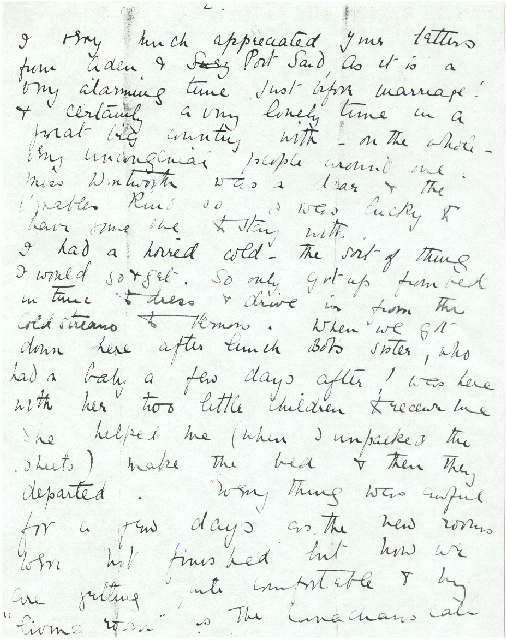 2.
I very much appreciated your letters
from Aden & Suez Port Said, as it is a
very alarming time just before marriage!
& certainly a very lonely time in a
great big country with - on the whole -
very uncongenial people around me.
Miss Wentworth was a dear & the
kind so I was lucky to
have some one to stay with.
I had a horrid cold - the sort of thing
I would go & get. So only got up from bed
in time to dress & drive in from the
Coldstreams to Vernon. When we got
down here after lunch Bobs sister, who
had a baby a few days after, was here
with her two little children to receive me
She helped me (when I unpacked the
sheets) make the bed & then they
departed. Every thing was awful
for a few days as the new rooms
were not finished but now we
are getting quite comfortable & my
"living room" as the Canadians call